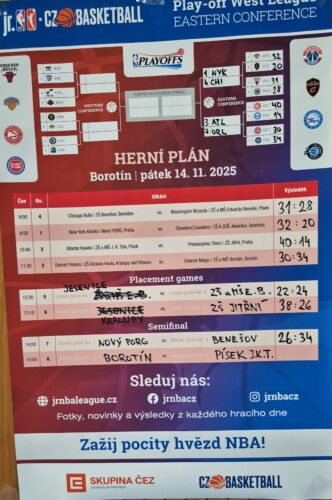 jr. NBA · CZ BASKETBALL
Play-off West League
EASTERN CONFERENCE
PLAYOFFS
WESTERN CONFERENCE
EASTERN CONFERENCE
1 NYK
4 CHI
3 ATL
2 ORL
32
20
31
28
40
14
30
34
HERNÍ PLÁN
Borotín | pátek 14. 11. 2025
Čas No. Utkání Výsledek
9:00 4 Chicago Bulls / ZŠ Benešov, Benešov vs Washington Wizards / ZŠ a MŠ Edvarda Beneše, Písek 31:28
9:53 1 New York Knicks / Nový PORG, Praha vs Cleveland Cavaliers / ZŠ Jesenice 32:20
10:40 3 Atlanta Hawks / ZŠ a MŠ J. K. Tyla, Písek vs Philadelphia 76ers / ZŠ Jitřní, Praha 40:14
11:30 2 Detroit Pistons / ZŠ Václava Havla, Kralupy nad Vltavou vs Orlando Magic / ZŠ a MŠ Borotín, Borotín 30:34
Placement games
12:20 5 JESENICE vs ZŠ a MŠ E.B. 22:24
13:10 6 JESENICE KRALUPY vs ZŠ JITŘNÍ 38:26
Semifinal
14:00 7 NOVÝ PORG vs BENEŠOV 26:34
8 BOROTÍN vs PÍSEK J.K.T.
Sleduj nás:
jrnbaleague.cz jrnbacz jrnbacz
Fotky, novinky a výsledky z každého hracího dne
Zažij pocity hvězd NBA!
SKUPINA ČEZ
GENERÁLNÍ PARTNER
CZ BASKETBALL